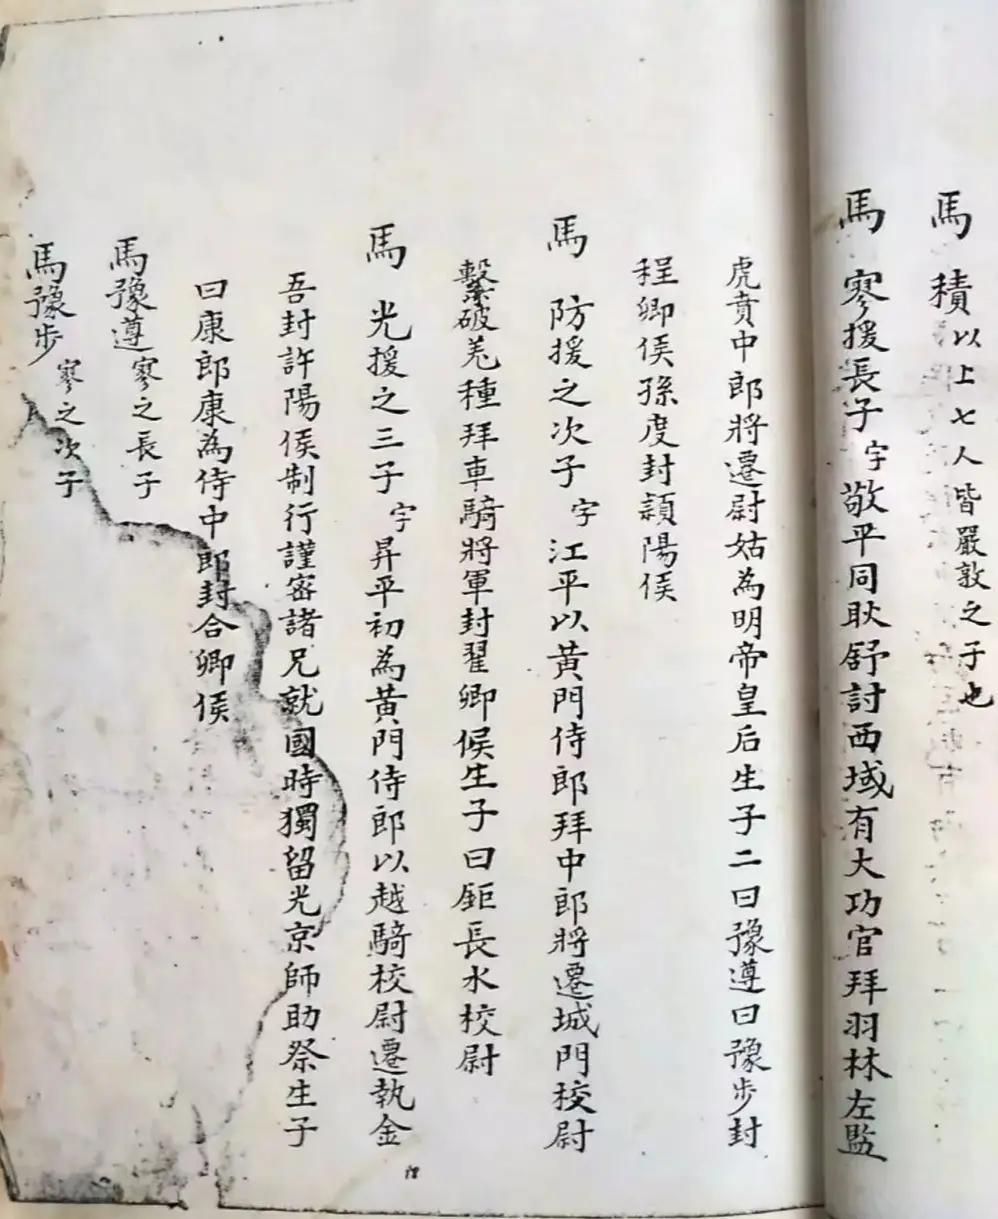 馬 積以上七人皆嚴敦之子也
馬 寥援長子字敬平同耿舒討西域有大功官拜羽林左監
虎賁中郎將遷尉姑為明帝皇后生子二曰豫遵曰豫步封
程卿侯孫度封頴陽侯
馬 防援之次子字江平以黃門侍郎拜中郎將遷城門校尉
繫破羌種拜車騎將軍封翟卿候生子曰鉅長水校尉
馬 光援之三子字昇平初為黃門侍郎以越騎校尉遷執金
吾封許陽侯制行謹密諸兄就國時獨留光京師助祭生子
曰康郎康為侍中郎封合卿侯
馬豫遵寥之長子
馬豫步寥之次子